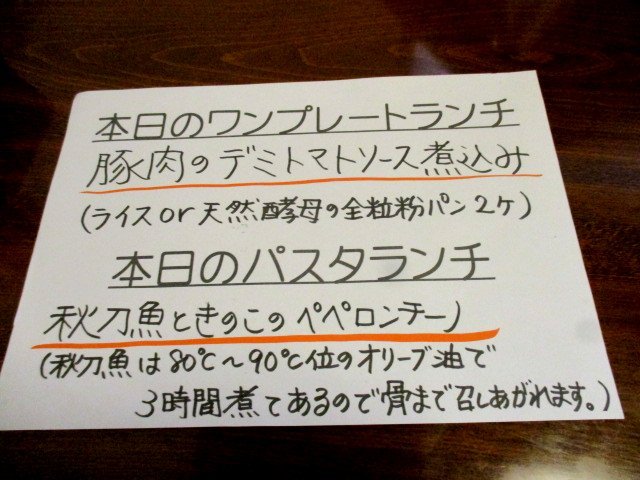 本日のワンプレートランチ
豚肉のデミトマトソース煮込み
(ライスor天然酵母の全粒粉パン2ケ)
本日のパスタランチ
秋刀魚ときのこのペペロンチーノ
(秋刀魚は80℃～90℃位のオリーブ油で
3時間煮てあるので骨まで召しあがれます。)